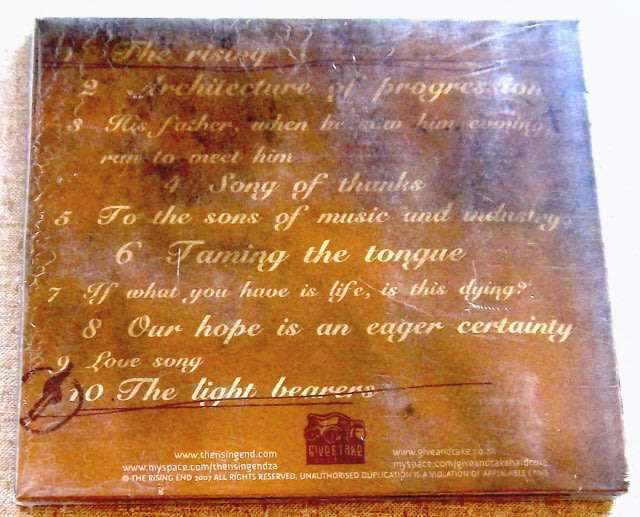 1 The rising
2 Architecture of progression
3 His father, when he saw him coming
ran to meet him
4 Song of thanks
5 To the sons of music and industry.
6 Taming the tongue
7 If what you have is life, is this dying?
8 Our hope is an eager certainty
9 Love song
10 The light bearers
GIVE&TAKE
www.therisingend.com
www.giveandtake.co.za
www.myspace.com/therisingendza
myspace.com/giveandtakehardcore
© THE RISING END 2007 ALL RIGHTS RESERVED, UNAUTHORISED DUPLICATION IS A VIOLATION OF APPLICABLE LAWS